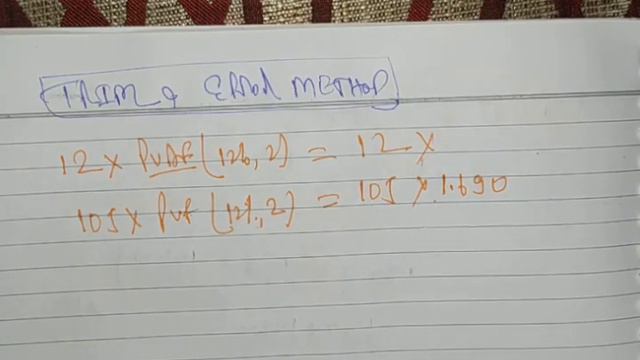 TRIAL & ERROR METHOD
12 x PVAF (12%, 2) = 12 x
105 x PVF (12%, 2) = 105 x 1.690